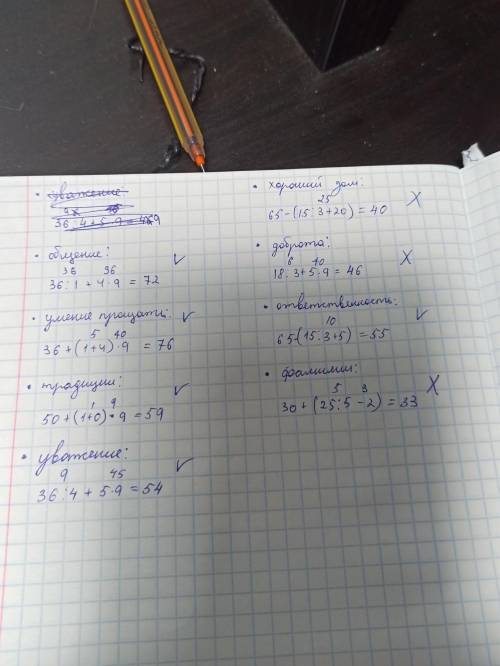 уважение
9 45
36:4+5·9=459
общение:
36 36
36:1+4·9=72
умение прощать:
5 40
36+(1+4)·9=76
традиции:
1 9
50+(1+0)·9=59
уважение:
9 45
36:4+5·9=54
хороший дом:
25
65-(15:3+20)=40
доброта:
6 40
18:3+5·9=46
ответственность:
10
65-(15:3+5)=55
фамилии:
5 3
30+(25:5-2)=33